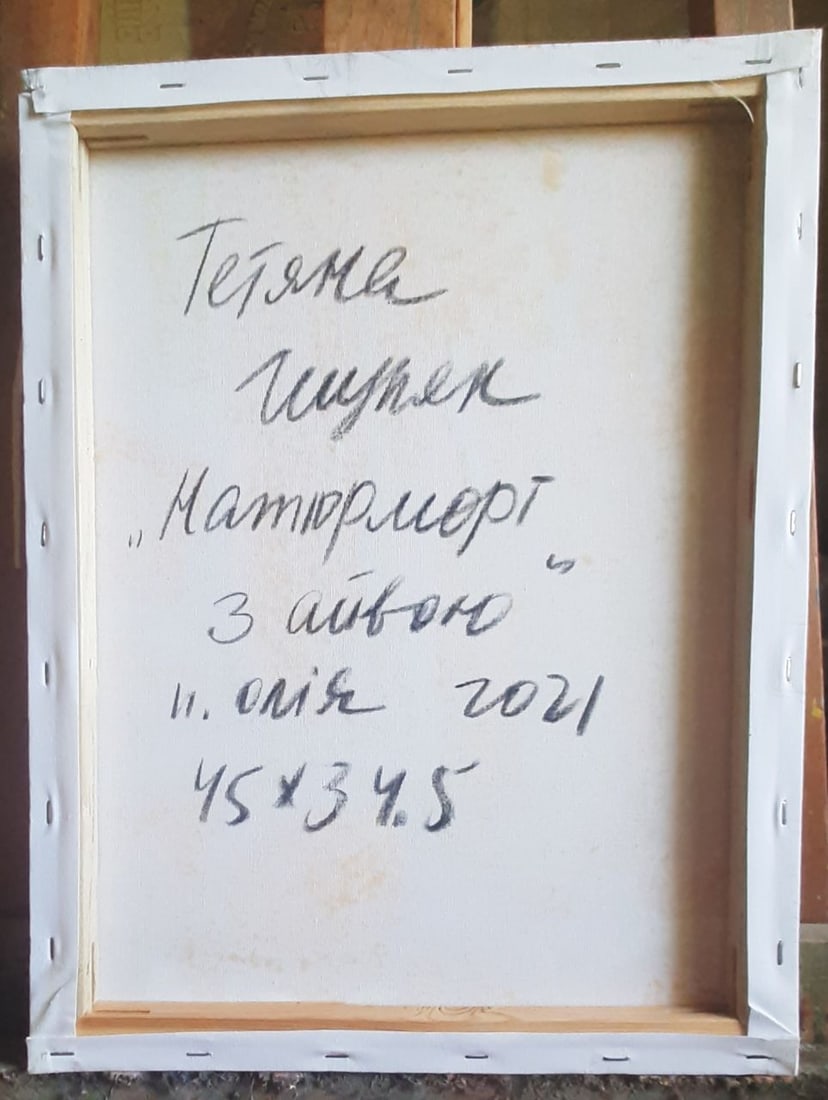 Тетяна
„Натюрморт
з айвою"
п. олія 2021
45x34.5